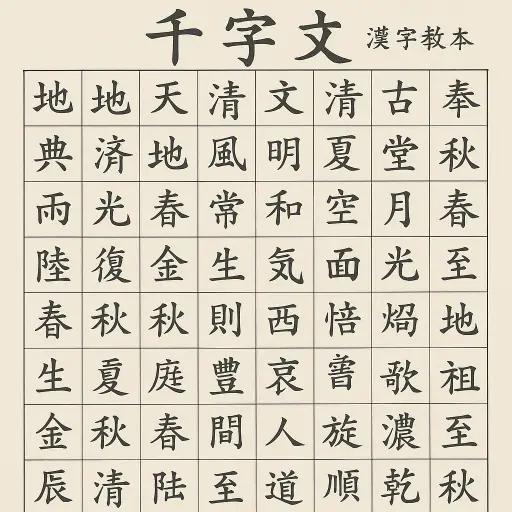 千字文 漢字教本
地地天清文清古奉
典済地風明夏堂秋
雨光春常和空月春
陸復金生気面光至
春秋秋則西悟地
生夏庭豊哀歌祖
金秋春間人旋濃至
辰清陆至道順乾秋